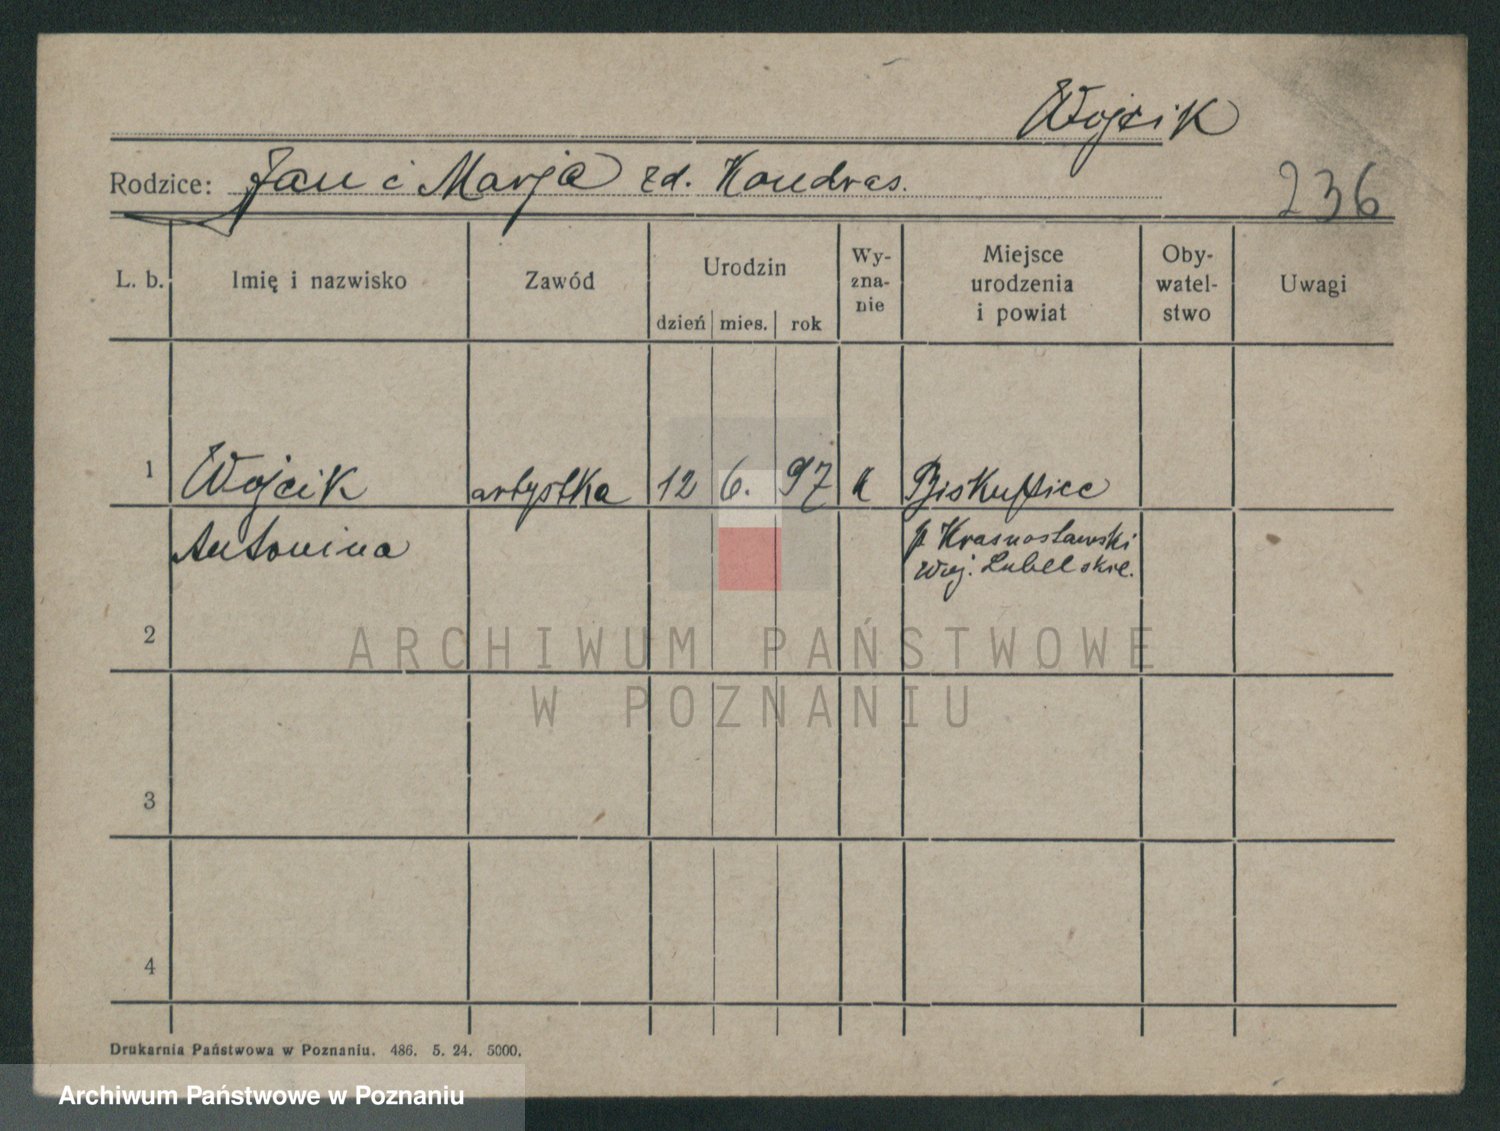 Wojcik
Rodzice: Jan i Marja zd. Kondras.
236
L. b. Imię i nazwisko Zawód Urodzin dzień mies. rok Wy-zna-nie Miejsce urodzenia i powiat Oby-watel-stwo Uwagi
1 Wojcik artystka 12 6. 97 k Biskupice
Antonina p Krasnostawski
woj. Lubelskie.
2
ARCHIWUM PAŃSTWOWE
W POZNANIU
3
4
Drukarnia Państwowa w Poznaniu. 486. 5. 24. 5000.
Archiwum Państwowe w Poznaniu